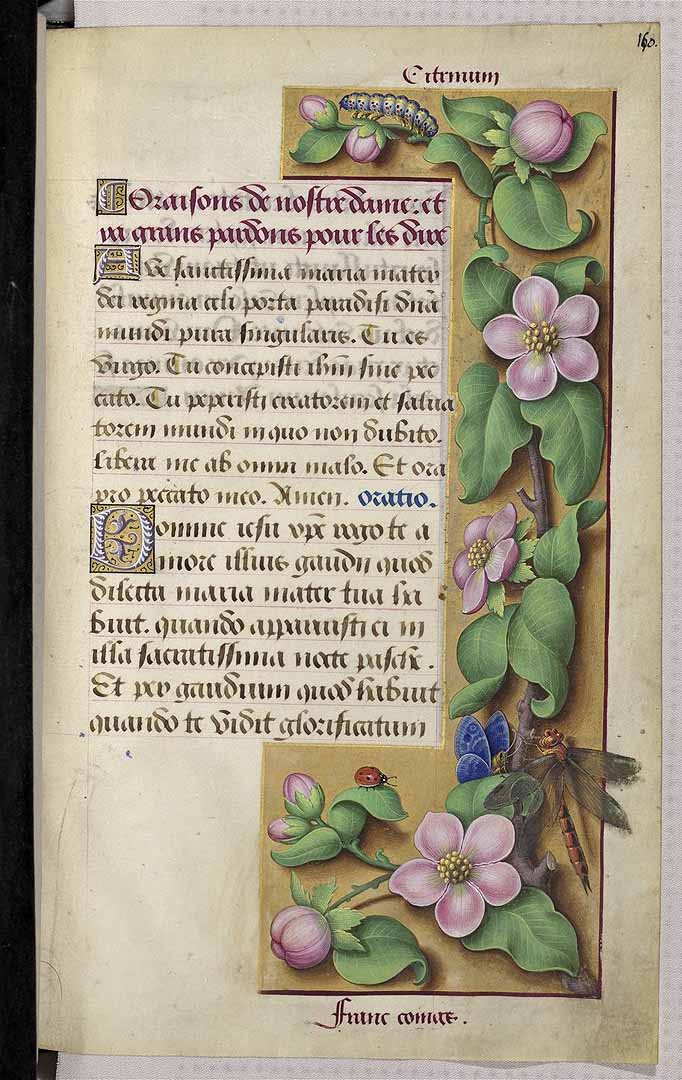 160.
Citrinum
Oraisons de nostre dame: et
grans pardons pour les dire
Ave sanctissima maria mater
dei regina celi porta paradisi dña
mundi pura singularis. Tu es
Virgo. Tu concepisti ihm̃ sine pec
cato. Tu peperisti creatorem et salva
torem mundi in quo non dubito.
libera me ab omni malo. Et ora
pro peccato meo. Amen. oratio.
Domine iesu xpe rogo te a
more illius gaudii quod
dilecta maria mater tua ha
buit. quando apparuisti ei in
illa sacratissima nocte pasche.
Et per gaudium quod habuit
quando te vidit glorificatum
Franc coinge.